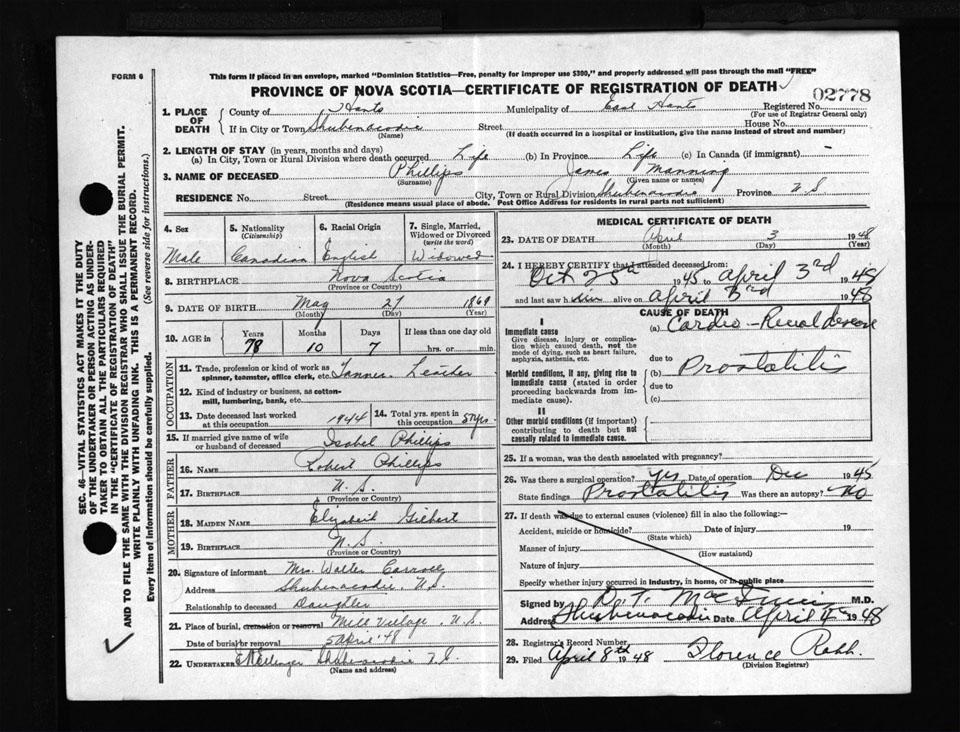 FORM 6
This form if placed in an envelope, marked "Dominion Statistics—Free, penalty for improper use $300," and properly addressed will pass through the mail "FREE"
PROVINCE OF NOVA SCOTIA—CERTIFICATE OF REGISTRATION OF DEATH
02778
1. PLACE OF DEATH
County of Hants Municipality of East Hants Registered No.
(For use of Registrar General only)
If in City or Town Shubenacadie Street House No.
(Name) (If death occurred in a hospital or institution, give the name instead of street and number)
2. LENGTH OF STAY (in years, months and days)
(a) In City, Town or Rural Division where death occurred Life (b) In Province Life (c) In Canada (if immigrant) -
3. NAME OF DECEASED Phillips James Manning
(Surname) (Given name or names)
RESIDENCE No. Street City, Town or Rural Division Shubenacadie Province N S
(Residence means usual place of abode. Post Office Address for residents in rural parts not sufficient)
4. Sex
Male
5. Nationality
(Citizenship)
Canadian
6. Racial Origin
English
7. Single, Married, Widowed or Divorced
(write the word)
Widowed
8. BIRTHPLACE Nova Scotia
(Province or Country)
9. DATE OF BIRTH May 27 1869
(Month) (Day) (Year)
10. AGE in
Years Months Days If less than one day old
78 10 7 hrs. or min.
OCCUPATION
11. Trade, profession or kind of work as spinner, teamster, office clerk, etc. Tanner Leather
12. Kind of industry or business, as cotton-mill, lumbering, bank, etc.
13. Date deceased last worked at this occupation 1944
14. Total yrs. spent in this occupation 57 yrs.
15. If married give name of wife or husband of deceased Isabel Phillips
FATHER
16. NAME Robert Phillips
17. BIRTHPLACE N. S.
(Province or Country)
MOTHER
18. MAIDEN NAME Elizabeth
19. BIRTHPLACE N. S.
(Province or Country)
20. Signature of informant Mrs. Walter Carroll
Address Shubenacadie, N.S.
Relationship to deceased Daughter
21. Place of burial, cremation or removal Mill Village, N.S.
Date of burial or removal 5 April '48
22. UNDERTAKER Shubenacadie N.S.
(Name and address)
MEDICAL CERTIFICATE OF DEATH
23. DATE OF DEATH April 3 1948
(Month) (Day) (Year)
24. I HEREBY CERTIFY that I attended deceased from:
Oct 25th 1945 to April 3rd 1948
and last saw him alive on April 3rd 1948
CAUSE OF DEATH
I
Immediate cause
Give disease, injury or complication which caused death, not the mode of dying, such as heart failure, asphyxia, asthenia, etc.
(a) Cardio-Renal disease
due to
Morbid conditions, if any, giving rise to immediate cause (stated in order proceeding backwards from immediate cause).
(b) Prostatitis
due to
(c)
II
Other morbid conditions (if important) contributing to death but not causally related to immediate cause.
25. If a woman, was the death associated with pregnancy?
26. Was there a surgical operation? Yes Date of operation Dec 1945
State findings Prostatitis Was there an autopsy? No
27. If death was due to external causes (violence) fill in also the following:—
Accident, suicide or homicide? Date of injury 19
(State which)
Manner of injury
(How sustained)
Nature of injury
Specify whether injury occurred in industry, in home, or in public place
Signed by M.D.
Address Shubenacadie Date April 4th 1948
28. Registrar's Record Number
29. Filed April 8th 1948 Florence Robb.
(Division Registrar)
SEC. 46—VITAL STATISTICS ACT MAKES IT THE DUTY
OF THE UNDERTAKER OR PERSON ACTING AS UNDER-
TAKER TO OBTAIN ALL THE PARTICULARS REQUIRED
IN THE "CERTIFICATE OF REGISTRATION OF DEATH"
AND TO FILE THE SAME WITH THE DIVISION REGISTRAR WHO SHALL ISSUE THE BURIAL PERMIT.
WRITE PLAINLY WITH UNFADING INK. THIS IS A PERMANENT RECORD.
Every item of information should be carefully supplied. (See reverse side for instructions.)